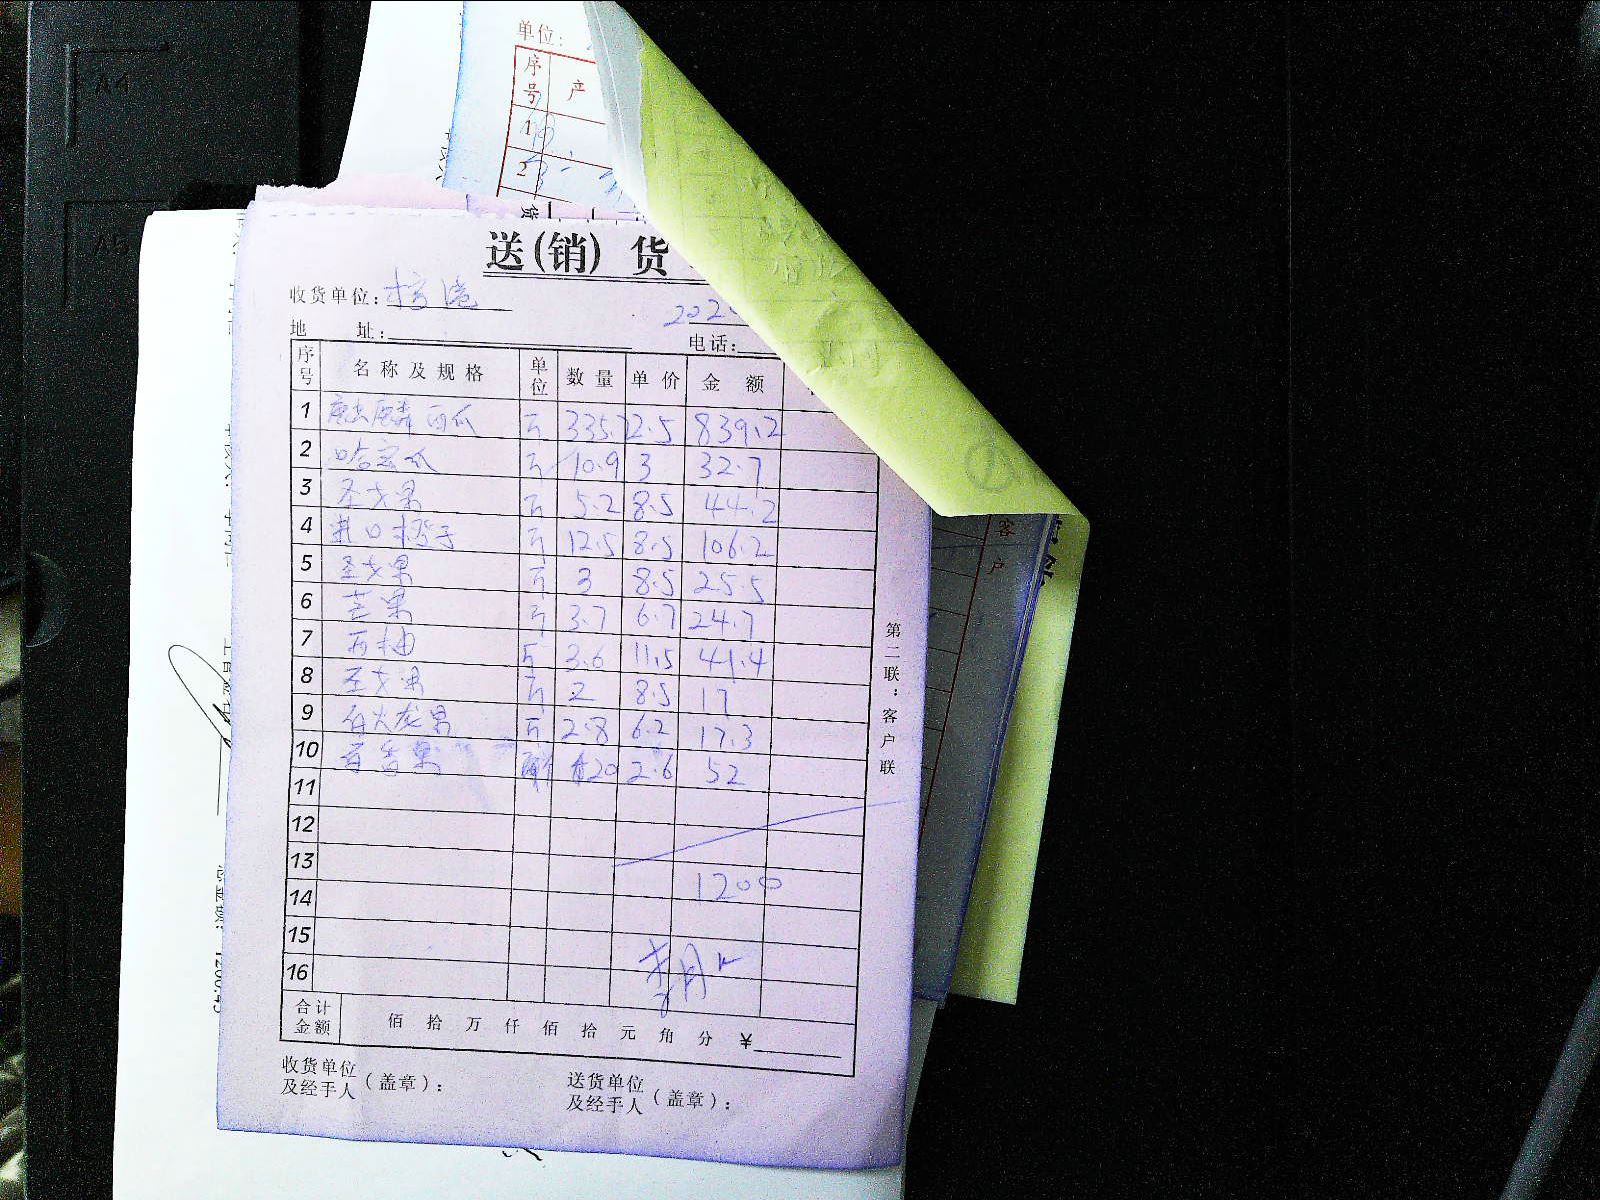 单位：
序号 产
1
2
送(销)货
收货单位：
202
地 址： 电话：
序号 名称及规格 单位 数量 单价 金额
1 麒麟西瓜 斤 335.7 2.5 839.2
2 哈密瓜 斤 10.9 3 32.7
3 圣女果 斤 5.2 8.5 44.2
4 进口橙子 斤 12.5 8.5 106.2
5 圣女果 斤 3 8.5 25.5
6 芒果 斤 3.7 6.7 24.7
7 西柚 斤 3.6 11.5 41.4
8 圣女果 斤 2 8.5 17
9 白火龙果 斤 2.8 6.2 17.3
10 百香果 20 2.6 52
11
12
13
14 1200
15
16
合计金额 佰拾万仟佰拾元角分 ￥
收货单位及经手人（盖章）： 送货单位及经手人（盖章）：
第二联：客户联
客户
A4
A5